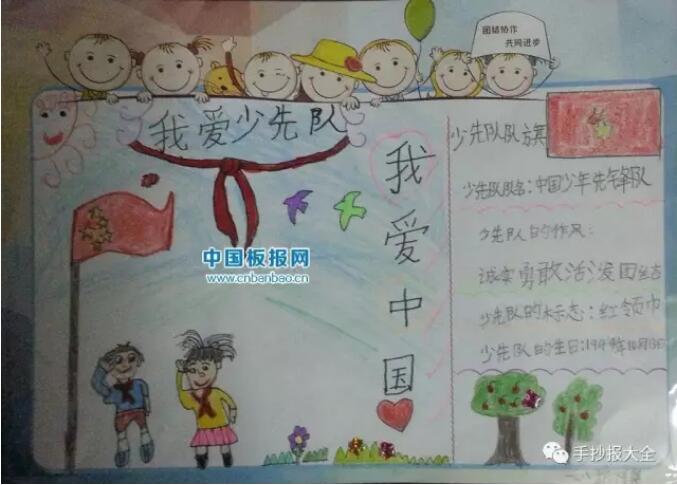 团结协作
共同进步
我爱少先队
我爱中国
中国板报网
www.cnbanbao.cn
少先队队旗
少先队队名:中国少年先锋队
少先队的作风:
诚实勇敢活泼团结
少先队的标志:红领巾
少先队的生日:1949年10月13日
手抄报大全